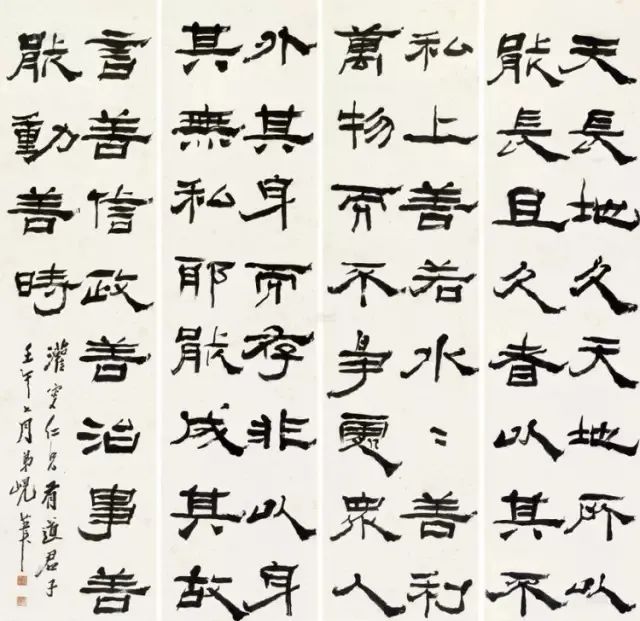 天長地久天地所以
能長且久者以其不
私上善若水〻善利
萬物而不爭處衆人
外其身而存非以身
其無私耶能成其故
言善信政善治事善
能動善時
仁兄有道君子
壬午 月弟峴